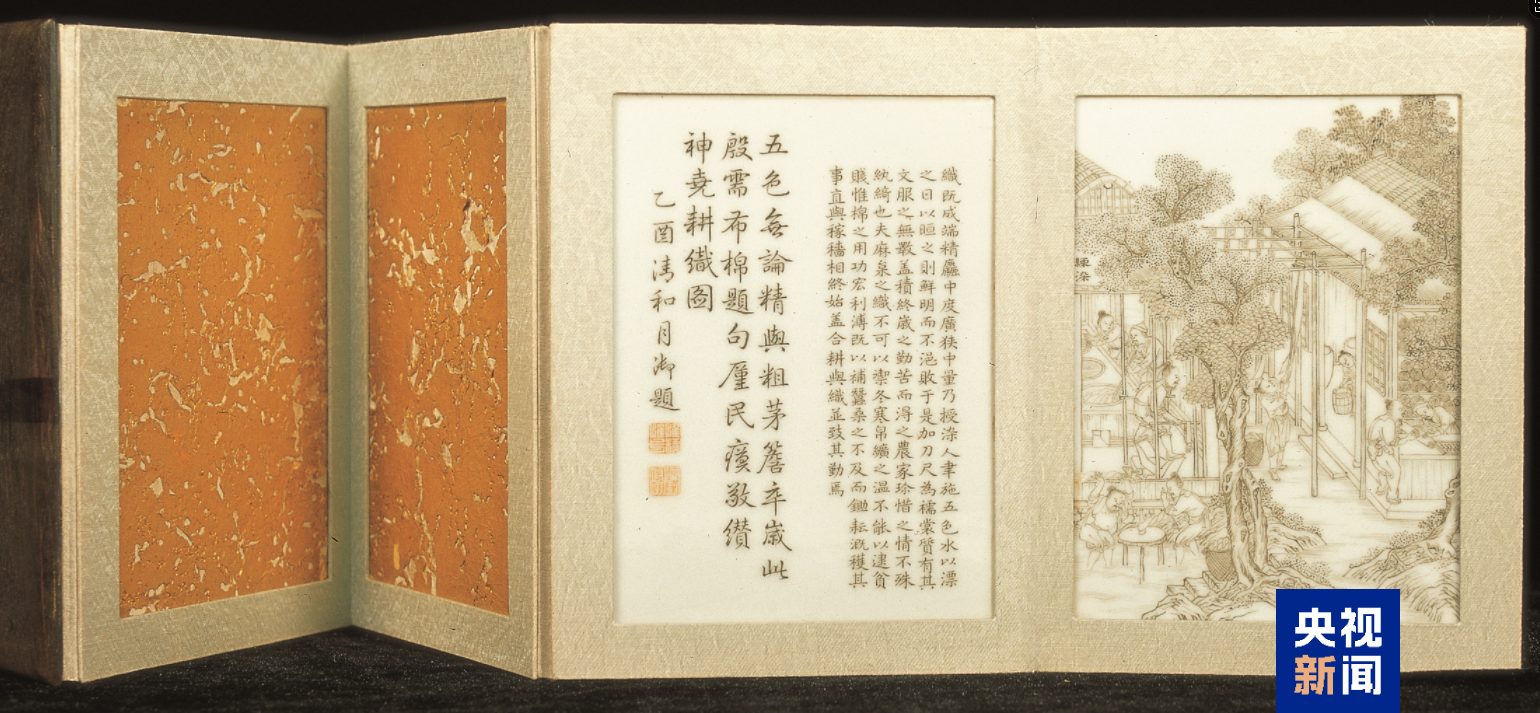 練染
織既成端精麤中度廣狹中量乃授染人聿施五色水以漂
之日以暅之則鮮明而不浥敗于是加刀尺為襦裳質有其
文服之無斁盖積終歳之勤苦而得之農家珍惜之情不殊
紈綺也夫麻枲之織不可以禦冬寒帛纊之溫不能以逮貧
賤惟棉之用功宏利溥既以補蠶桑之不及而鋤耘溉穫其
事直與稼穡相終始盖合耕與織並致其勤焉
五色無論精與粗茅簷卒歳此
殷需布棉題句廑民瘼敬纘
神堯耕織圖
乙酉清和月御題
央视
新闻